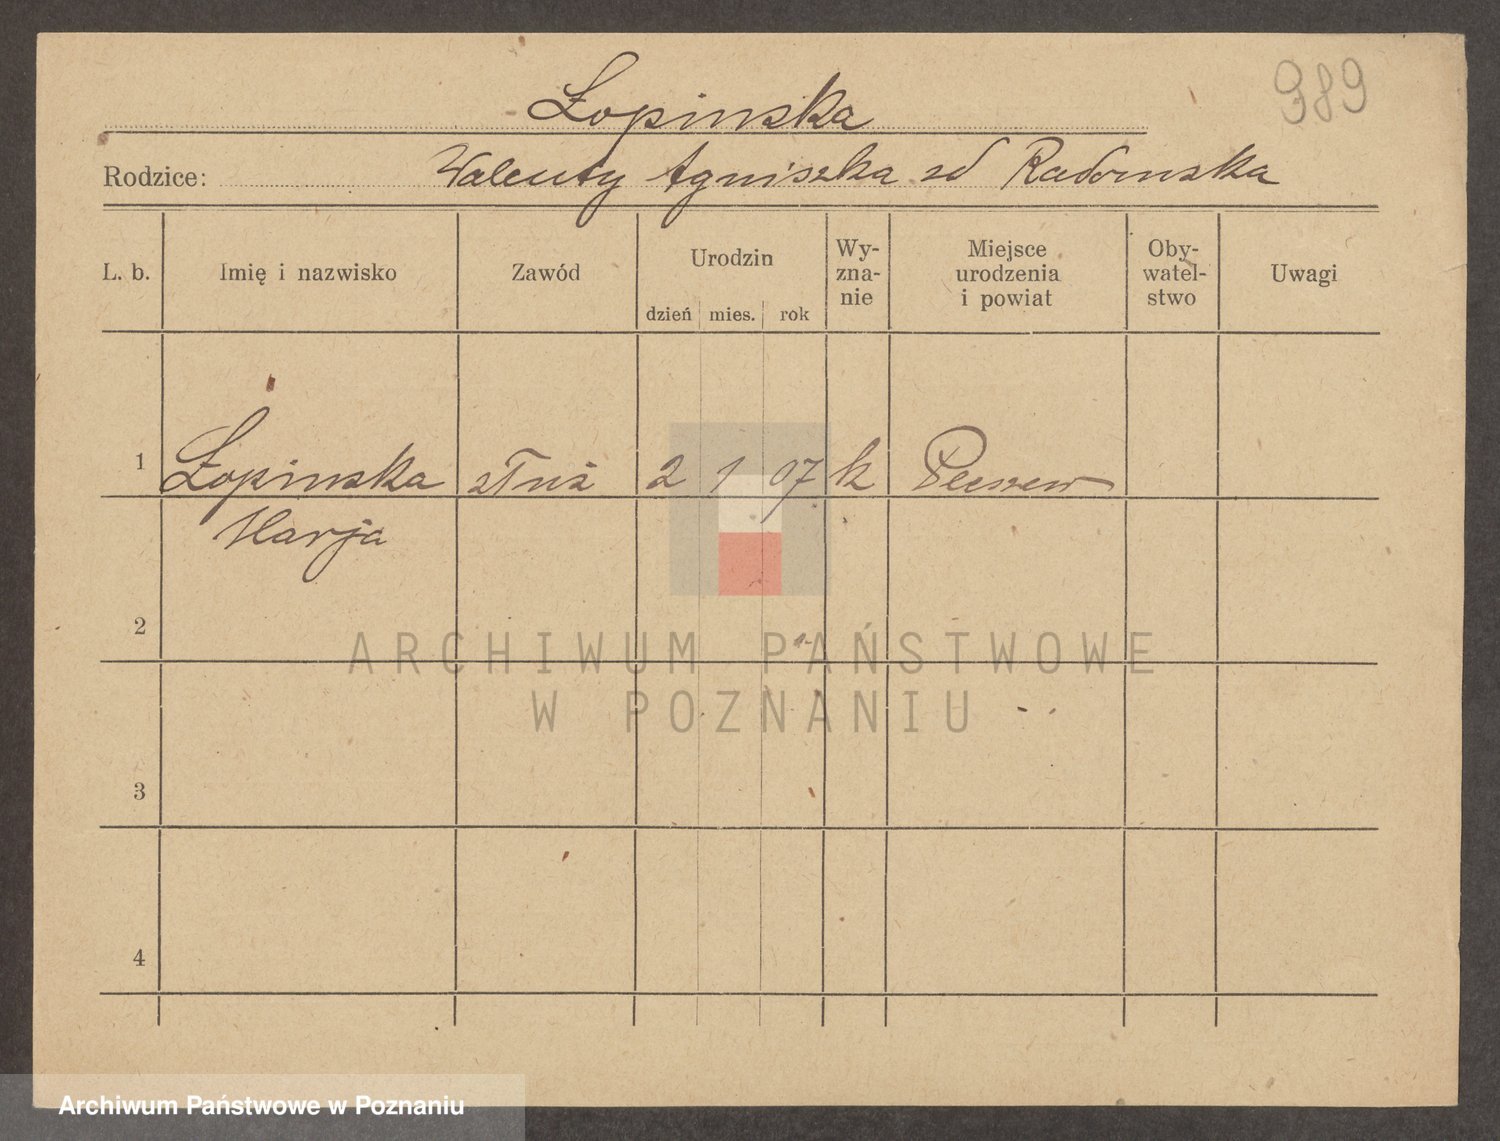 989
Łopinska
Rodzice: Walenty Agniszka zd Radomska
L. b. Imię i nazwisko Zawód Urodzin dzień mies. rok Wy-zna-nie Miejsce urodzenia i powiat Oby-watel-stwo Uwagi
1 Łopinska służ 2 1 07 k Pleszew
Marja
2
3
4
ARCHIWUM PAŃSTWOWE
W POZNANIU
Archiwum Państwowe w Poznaniu